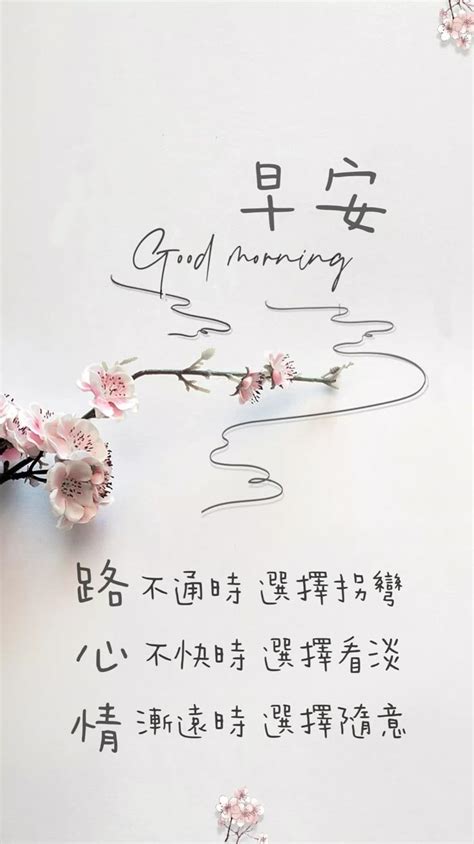 早安
Good morning
路 不通時 選擇拐彎
心 不快時 選擇看淡
情 漸遠時 選擇隨意